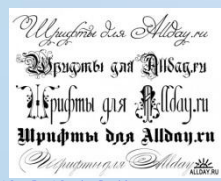 Шрифты для Allday.ru
Шрифты для Allday.ru
Шрифты для Allday.ru
Шрифты для Allday.ru
Шрифты для Allday.ru
ALLDAY.RU